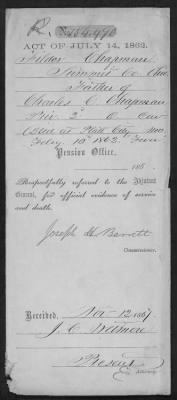 R.
ACT OF JULY 14, 1862.
Chapman
Summit Co. Ohio
Father of
Charles C. Chapman
Pri. 2" O Cav
Died at Platt City, Mo.
Feby 10" 1862.
Pension Office,
186
Respectfully referred to the Adjutant
General, for official evidence of service
and death.
Joseph H. Barrett
Commissioner.
Received, Nov 12, 1867
J. C.
Present
Attorney.